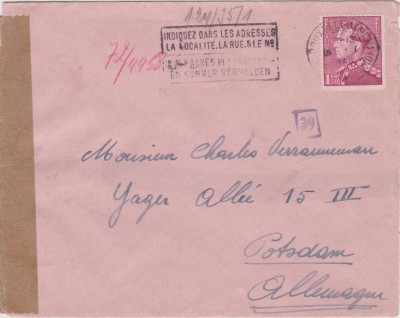 124/35/1
INDIQUEZ DANS LES ADRESSES
LA LOCALITÉ, LA RUE, & LE No
EN NUMMER VERMELDEN
39
Monsieur Charles Verrannneman
Yager Allée 15 III
Potsdam
Allemagne